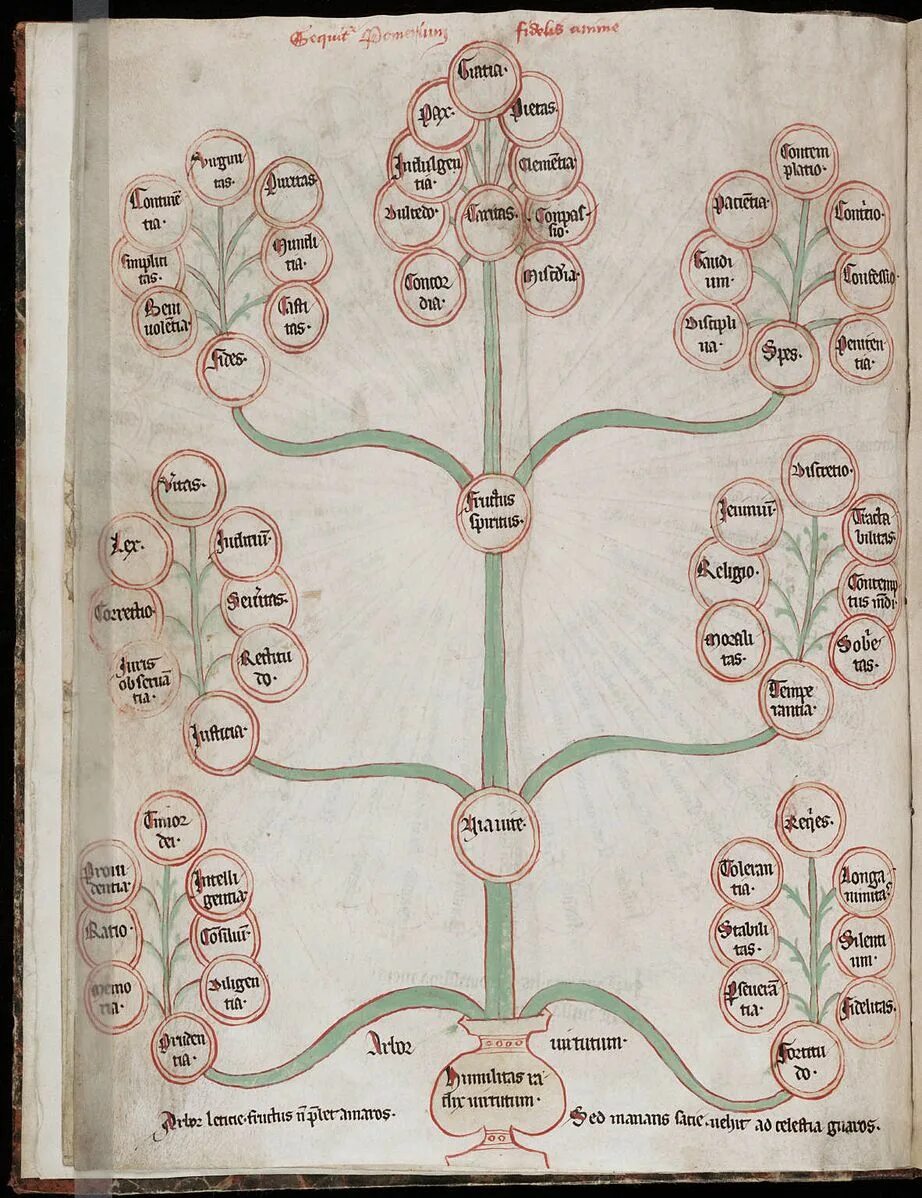 Sequit Pomerium fidelis anime
Gratia.
Pax.
Pietas.
Indulgen
tia.
Clemētia
Dulcedo.
Caritas.
Conpas
sio.
Concor
dia.
Mis̄dia.
Virgini
tas.
Continē
tia.
Puritas
Simplici
tas.
Mundi
tia.
Beni
uolētia.
Casti
tas.
Fides.
Contem
platio.
Paciētia.
Contricio.
Gaudi
um.
Confessio.
Discipli
na.
Peniten
tia.
Spes.
Fructus
spiritus.
Vĩtas.
Lex.
Judiciū.
Correctio.
Seũitas.
Iuris
obseruā
tia.
Rectitu
do.
Justicia.
Discretio.
Ieiuniū.
Tracta
bilitas.
Religio.
Contemp
tus mūdi
Morali
tas.
Sobrie
tas.
Tempe
rantia.
Via uite.
Timor
dei.
Proui
dentia.
Intelli
gentia.
Ratio.
Cōsiliū.
Memo
ria.
Diligen
tia.
Pruden
tia.
Req̇es.
Toleran
tia.
Longa
nimitas
Stabili
tas.
Silenti
um.
Pseuerā
tia.
Fidelitas.
Fortitu
do.
Arbor uirtutum.
Humilitas ra
dix uirtutum.
Arbor leticie. fructus n̄ p̄bet amaros.
Sed manans facie. uehit ad celestia gnaros.